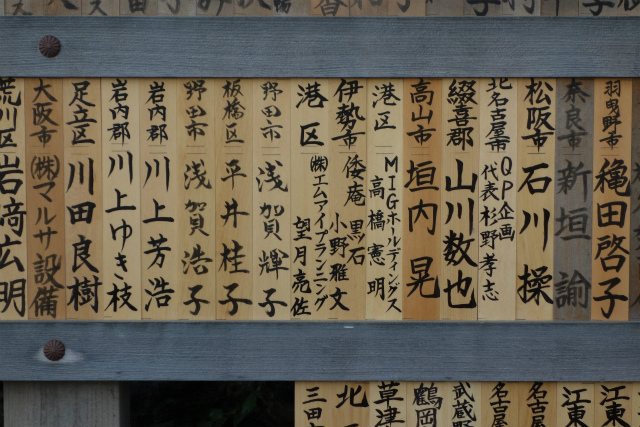 羽曳野市 穐田啓子
奈良市 新垣諭
松阪市 石川操
北名古屋市 QP企画 代表 杉野孝志
綴喜郡 山川数也
高山市 垣内晃
港区 MIGホールディングス 高橋憲明
伊勢市 倭庵 黒石 小野雅文
港区 ㈱エムアイプランニング 望月亮佐
野田市 浅賀輝子
板橋区 平井桂子
野田市 浅賀浩子
岩内郡 川上芳浩
岩内郡 川上ゆき枝
足立区 川田良樹
大阪市 ㈱マルサ設備
荒川区 岩﨑広明
江東
江東
名古屋
名古屋
武蔵野
鶴岡
草津
北
三田